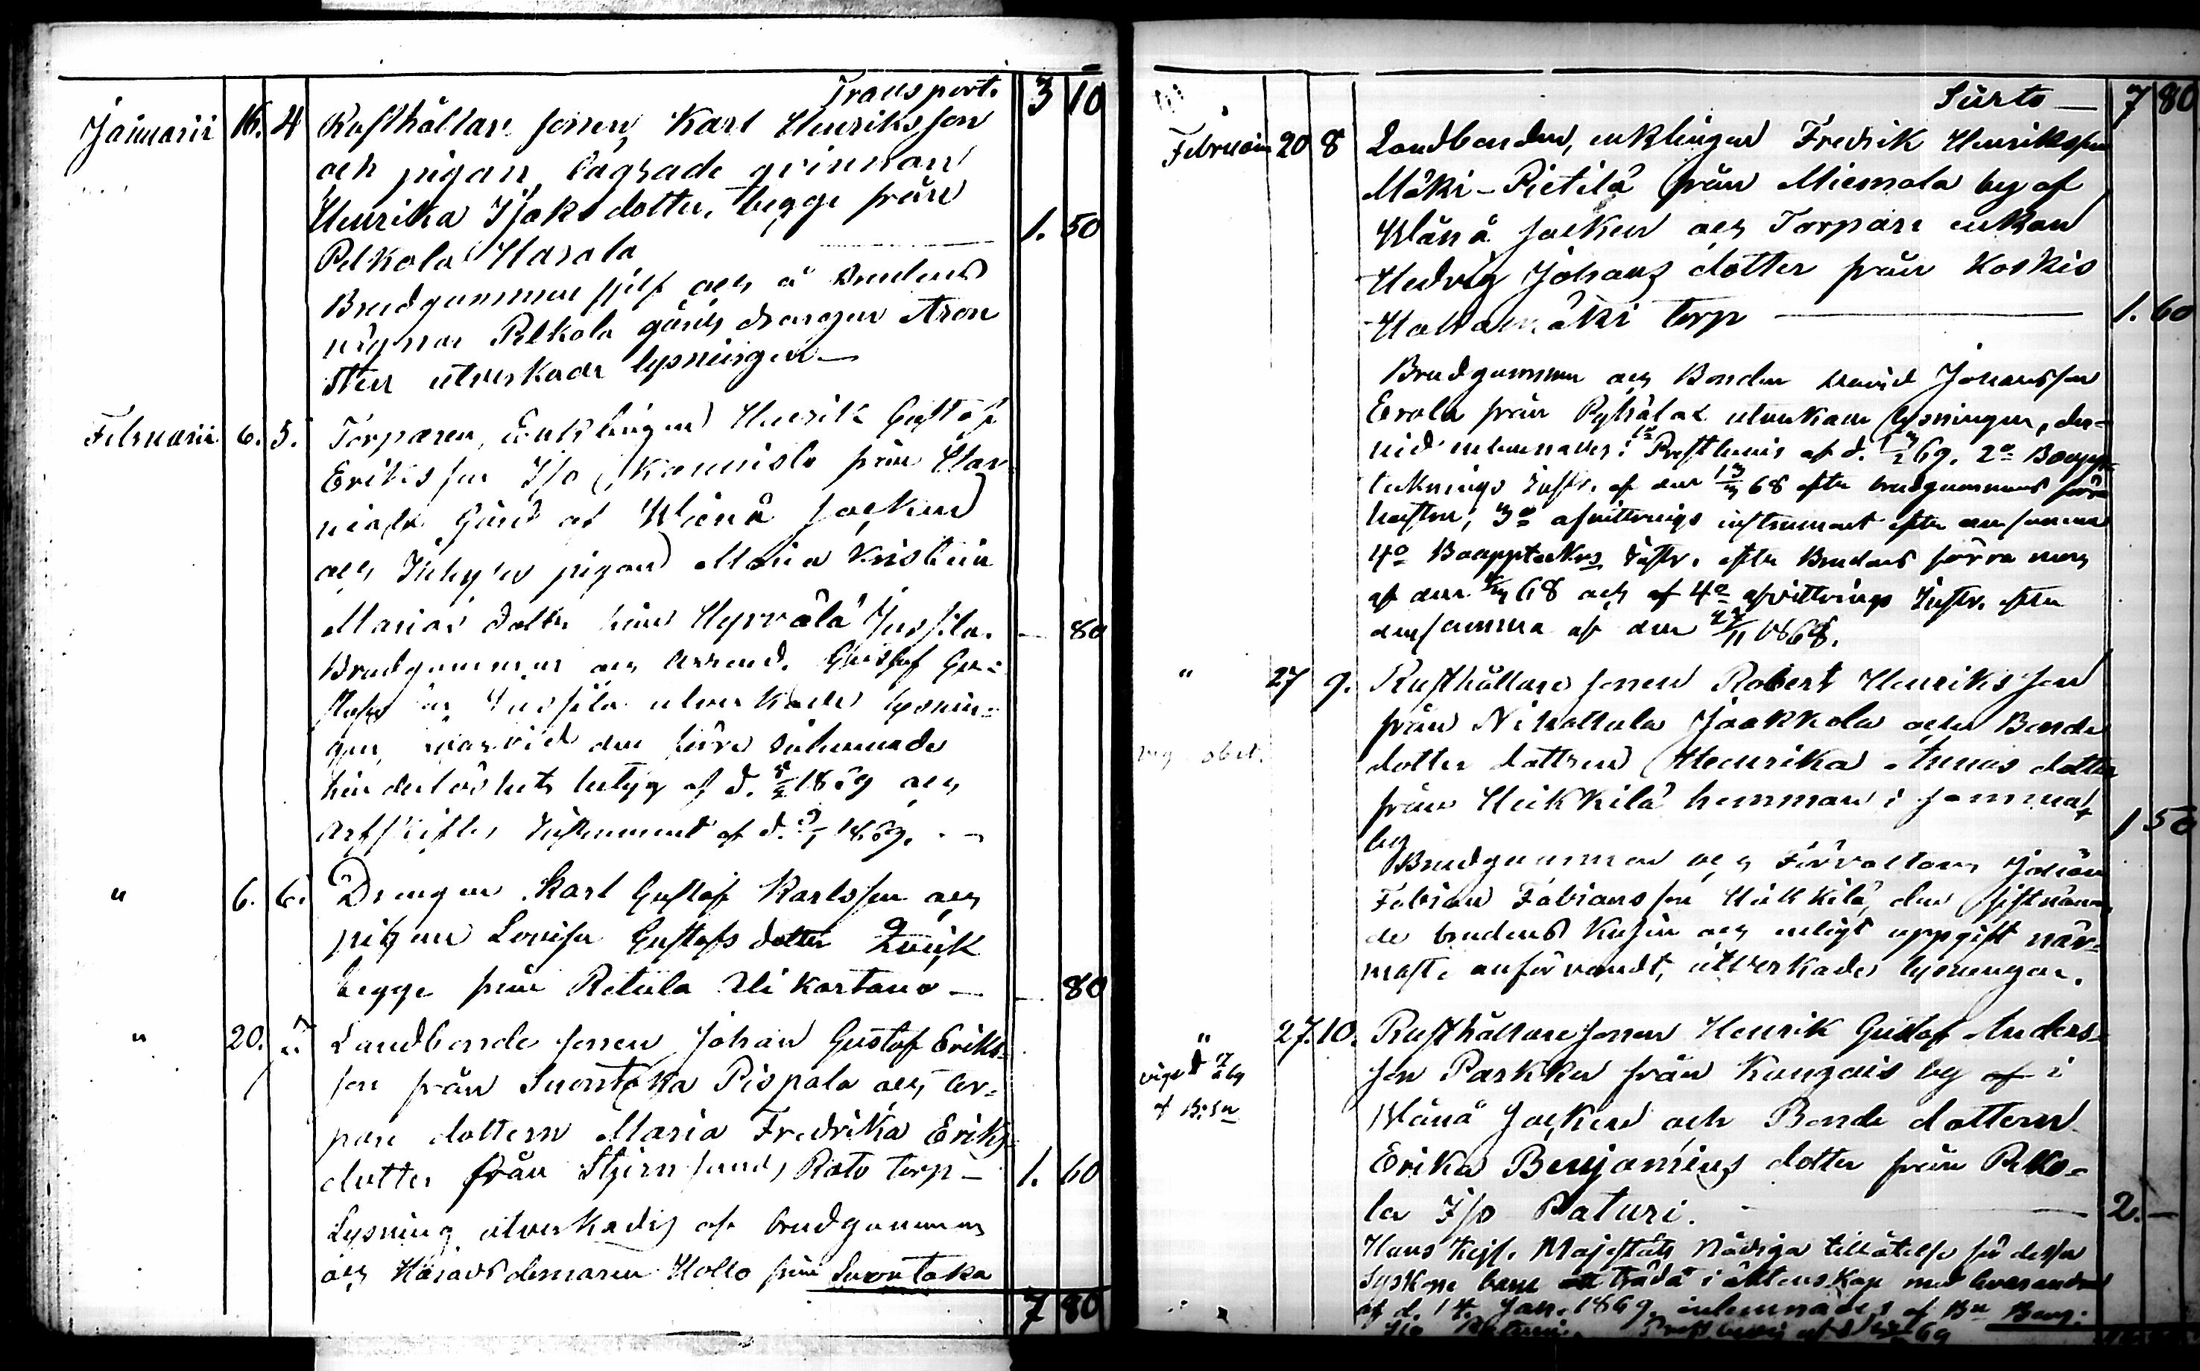 Transport. 3 10
Januarii 16. 4 Rusthållare sonen Karl Henriksson
och pigan, lägrade qvinnan
Henrika Isaksdotter, begge från
Pelkola Harola 1. 50
Brudgummen sjelf och å Brudens
vägnar Pelkola gårds drängen Aron
Sten utverkade lysningen —
Februarii 6. 5. Torparen, Enklingen Henrik Gustaf
Eriksson Iso Kannisto från
gård af Wånå socken
och Inhyses pigan Maria Kristina
Marias dotter från Hyrvälä Jussila. — 80
Brudgummen och Gustaf Gu-
Jussila utverkade lysnin-
gen, hvarvid den förre inlemnade
hinderlöshets betyg af d. 1869 och
Arfskiftes Instrument af d. 1869. —
" 6. 6. Drengen Karl Gustaf Karlsson och
pigan Lovisa Gustafs dotter Qvick
begge från Retula Yli kartano — — 80
" 20. 7 Landbonde sonen Johan Gustaf Eriks-
son från Suontaka Pispala och Tor-
pare dottern Maria Fredrika Eriks-
dotter från Stjernsunds Rato torp — 1. 60
Lysning utverkades af brudgummen
och Häradsdomaren Hollo från Suontaka
7 80
7 80
Februari 20 8 Landbonden, enklingen Fredrik Henriksson
Mäki-Pietilä från Miemola by af
Wånå socken och Torpare enkan
Hedvig Johans dotter från Koskis
torp — 1. 60
Brudgummen och Bonden David Johansson
Erola från utverkade lysningen, der-
vid inlemnades: 1o Prestbevis af d. 69. 2o Boupp-
tecknings Instr. af den 68 efter brudgummens förra
hustru, 3o afvittrings instrument efter den samma
4o Bouppteckngs Instr. efter Brudens förra man
af den 68 och af 4o afvittrings Instr. efter
den samma af den 1868.
" 27 9. Rusthållare sonen Robert Henriksson
från Nihattula Jaakkola och Bonde
dotter dottren Henrika Annas dotter
från Heikkilä hemman i samma
by 1 50
Brudgummen och Förvaltaren Johan
Fabian Fabiansson Heikkilä, den sistnämn
de brudens Kusin och enligt uppgift när-
maste anförvandt, utverkade lysningen.
" 27. 10. Rusthållare sonen Henrik Gustaf Anders-
son Parkku från Kangais by af i
Wånå Socken och Bonde dottern
Erika Benjamins dotter från Pelko-
la Iso Paturi. — 2. —
Hans Kejs. Majestäts Nådiga tillåtelse för dessa
Syskone barn att träda i äktenskap med hvarandra
af d. 14 Jan. 1869, inlemnades af Bn Benj.
69